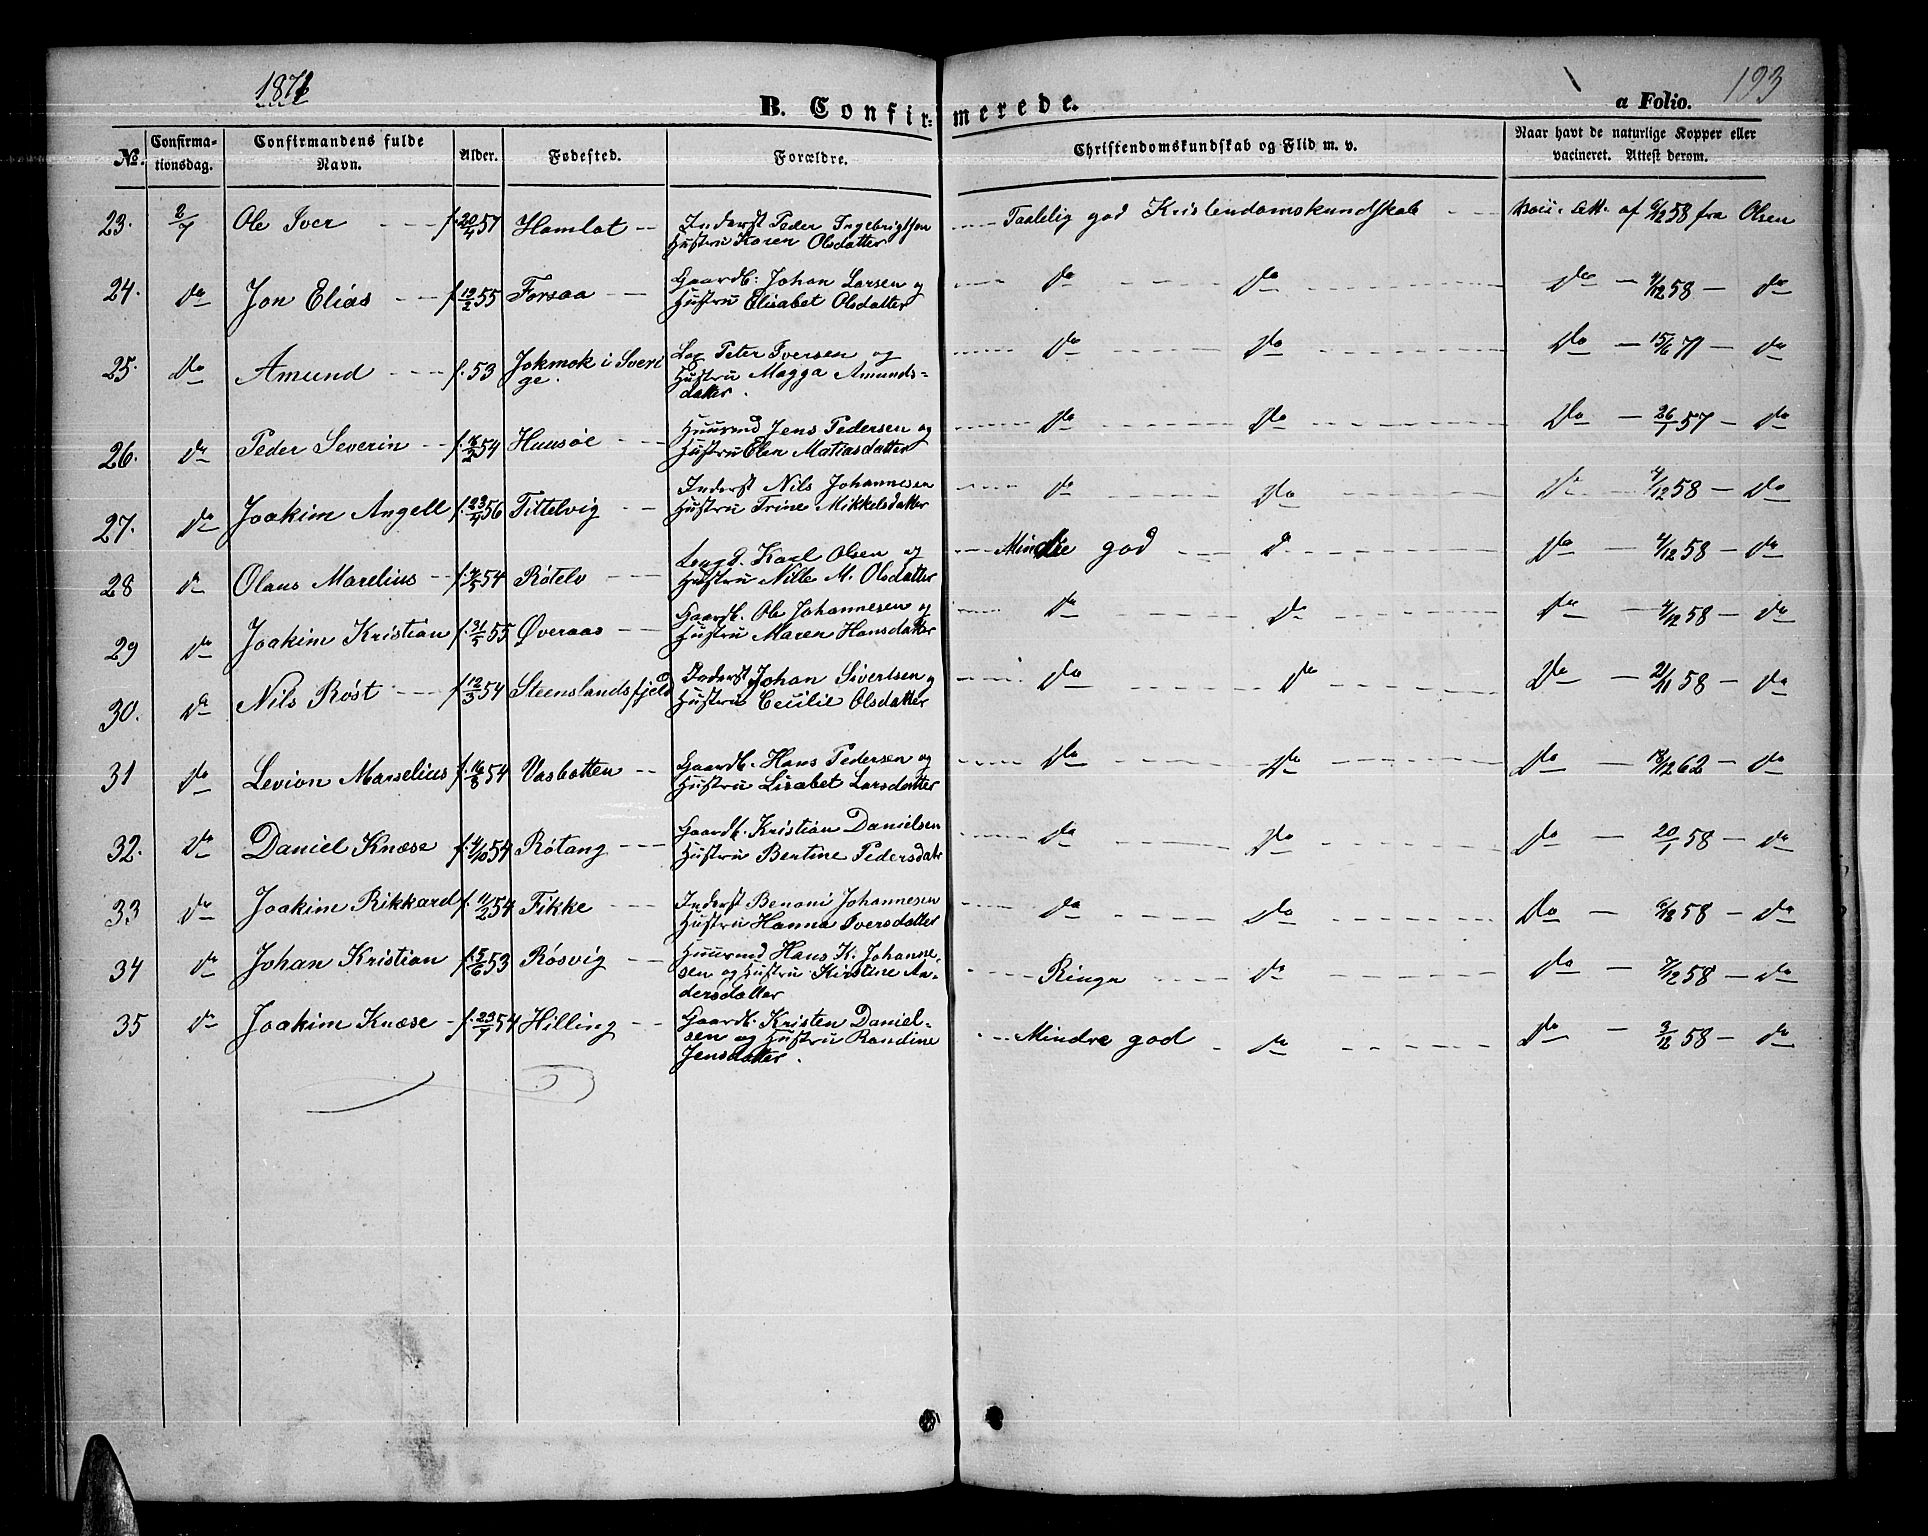 1871
B. Confirmerede.
a Folio. 193
No. Confirmationsdag. Confirmandens fulde Navn. Alder. Fødested. Forældre. Christendomskundskab og Flid m. v. Naar havt de naturlige Kopper eller vacineret. Attest derom.
23. 2/7 Ole Iver f. 20/4 57 Hamlot Inderst Peder Ingebrigtsen Hustru Karen Olsdatter Taalelig god Kristendomskundskab Att. af 6/12 58 fra Olsen
24. do Jon Elias f. 12/2 55 Forsaa Gaardb. Johan Larsen og Hustru Elisabet Olsdatter do do do 4/12 58 do
25. do Amund f. 53 Jokmok i Sverige. Lap Peter Iversen og Hustru Magga Amundsdatter. do do Do 15/6 71 do
26. do Peder Severin f. 8/2 54 Huusøe Huusmd Jens Pedersen og Hustru Elen Matiasdatter do do Do 26/1 57 do
27. do Joakim Angell f. 23/4 56 Tittelvig Inderst Nils Johannesen Hustru Trine Mikkelsdatter do do do 4/12 58 do
28 do Olaus Marelius 54 Røtelv Karl Olsen og Hustru Nille M. Olsdatter Mindre god do do 4/12 58 do
29 do Joakim Kristian f. 31/5 55 Øveraas Gaardb. Ole Johannesen og Hustru Maren Hansdatter do do do 4/12 58 do
30. do Nils Røst f. 12/3 54 Steenslandsfjeld Inderst Johan Sivertsen og Hustru Cecilie Olsdatter do do Do 21/11 58 do
31 do Levion Marselius f. 16/8 54 Vasbotten Gaardb. Hans Pedersen og Hustru Lisabet Larsdatter Do do Do 18/12 62 do
32. do Daniel Knæse f. 4/10 54 Røtang Gaardb. Kristian Danielsen Hustru Bertine Pedersdatr do do do 20/1 58 do
33 do Joakim Rikkard f. 11/2 54 Fikke Inderst Benoni Johannesen Hustru Hanna Iversdatter do do Do 6/12 58 do
34 do Johan Kristian f. 5/6 53 Røsvig Huusmd Hans K. Johannesen og Hustru Kirstine Andersdatter Ringe do do 7/12 58 do
35 do Joakim Knæse f. 23/7 54 Hilling Gaardb. Kristen Danielsen og Hustru Randine Jensdatter. Mindre god do do 3/12 58 do